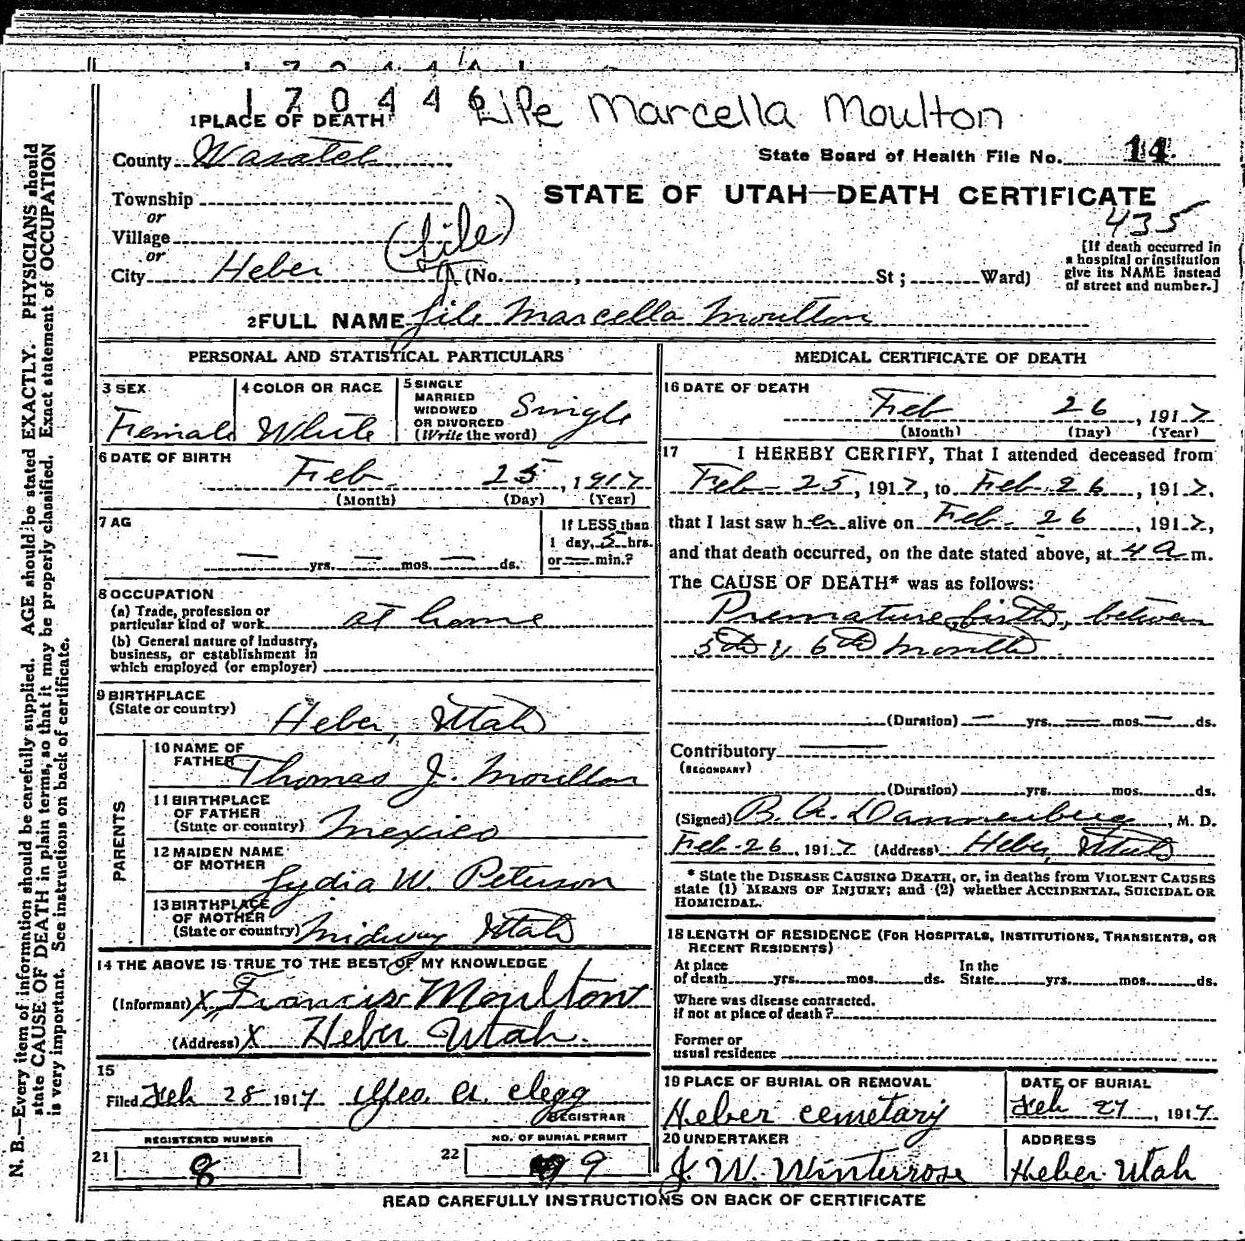 170446
Life Marcella Moulton
1 PLACE OF DEATH
County Wasatch
State Board of Health File No. 14
Township
STATE OF UTAH—DEATH CERTIFICATE
or
Village
(file)
435
or
City Heber (No. , St ; Ward)
[If death occurred in
a hospital or institution
give its NAME instead
of street and number.]
2 FULL NAME file Marcella Moulton
PERSONAL AND STATISTICAL PARTICULARS
3 SEX
Female
4 COLOR OR RACE
White
5 SINGLE
MARRIED
WIDOWED
OR DIVORCED
(Write the word)
Single
6 DATE OF BIRTH
Feb. 25, 1917
(Month) (Day) (Year)
7 AG
— yrs. — mos. — ds.
If LESS than
1 day, 5 hrs.
or — min.?
8 OCCUPATION
(a) Trade, profession or
particular kind of work at home
(b) General nature of industry,
business, or establishment in
which employed (or employer)
9 BIRTHPLACE
(State or country)
Heber, Utah
PARENTS
10 NAME OF
FATHER
Thomas J. Moulton
11 BIRTHPLACE
OF FATHER
(State or country) Mexico
12 MAIDEN NAME
OF MOTHER
Lydia W. Peterson
13 BIRTHPLACE
OF MOTHER
(State or country) Midway Utah
14 THE ABOVE IS TRUE TO THE BEST OF MY KNOWLEDGE
(Informant) X Francis Moulton
(Address) X Heber Utah.
15
Filed Feb 28 1917 Geo. A. Clegg
REGISTRAR
REGISTERED NUMBER
21 8
NO. OF BURIAL PERMIT
22 9
MEDICAL CERTIFICATE OF DEATH
16 DATE OF DEATH
Feb 26, 1917
(Month) (Day) (Year)
17 I HEREBY CERTIFY, That I attended deceased from
Feb - 25, 1917, to Feb. 26, 1917,
that I last saw her alive on Feb - 26, 1917,
and that death occurred, on the date stated above, at 4 a m.
The CAUSE OF DEATH* was as follows:
Premature birth, between
5th & 6th month
(Duration) — yrs. — mos. — ds.
Contributory —
(SECONDARY)
(Duration) yrs. mos. ds.
(Signed) B. A. Dannenberg, M. D.
Feb - 26, 1917 (Address) Heber, Utah
* State the DISEASE CAUSING DEATH, or, in deaths from VIOLENT CAUSES
state (1) MEANS OF INJURY; and (2) whether ACCIDENTAL, SUICIDAL OR
HOMICIDAL.
18 LENGTH OF RESIDENCE (FOR HOSPITALS, INSTITUTIONS, TRANSIENTS, OR
RECENT RESIDENTS)
At place
of death yrs. mos. ds. In the
State yrs. mos. ds.
Where was disease contracted.
if not at place of death?
Former or
usual residence
19 PLACE OF BURIAL OR REMOVAL
Heber cemetary
DATE OF BURIAL
Feb 27, 1917
20 UNDERTAKER
J. W. Winterrose
ADDRESS
Heber Utah
READ CAREFULLY INSTRUCTIONS ON BACK OF CERTIFICATE
N. B.—Every item of information should be carefully supplied. AGE should be stated EXACTLY. PHYSICIANS should
state CAUSE OF DEATH in plain terms, so that it may be properly classified. Exact statement of OCCUPATION
is very important. See instructions on back of certificate.